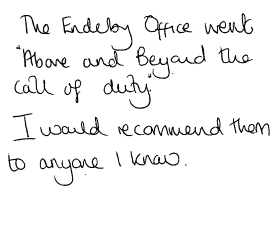 The Enderby Office went
"Above and Beyond the
call of duty."
I would recommend them
to anyone I know.